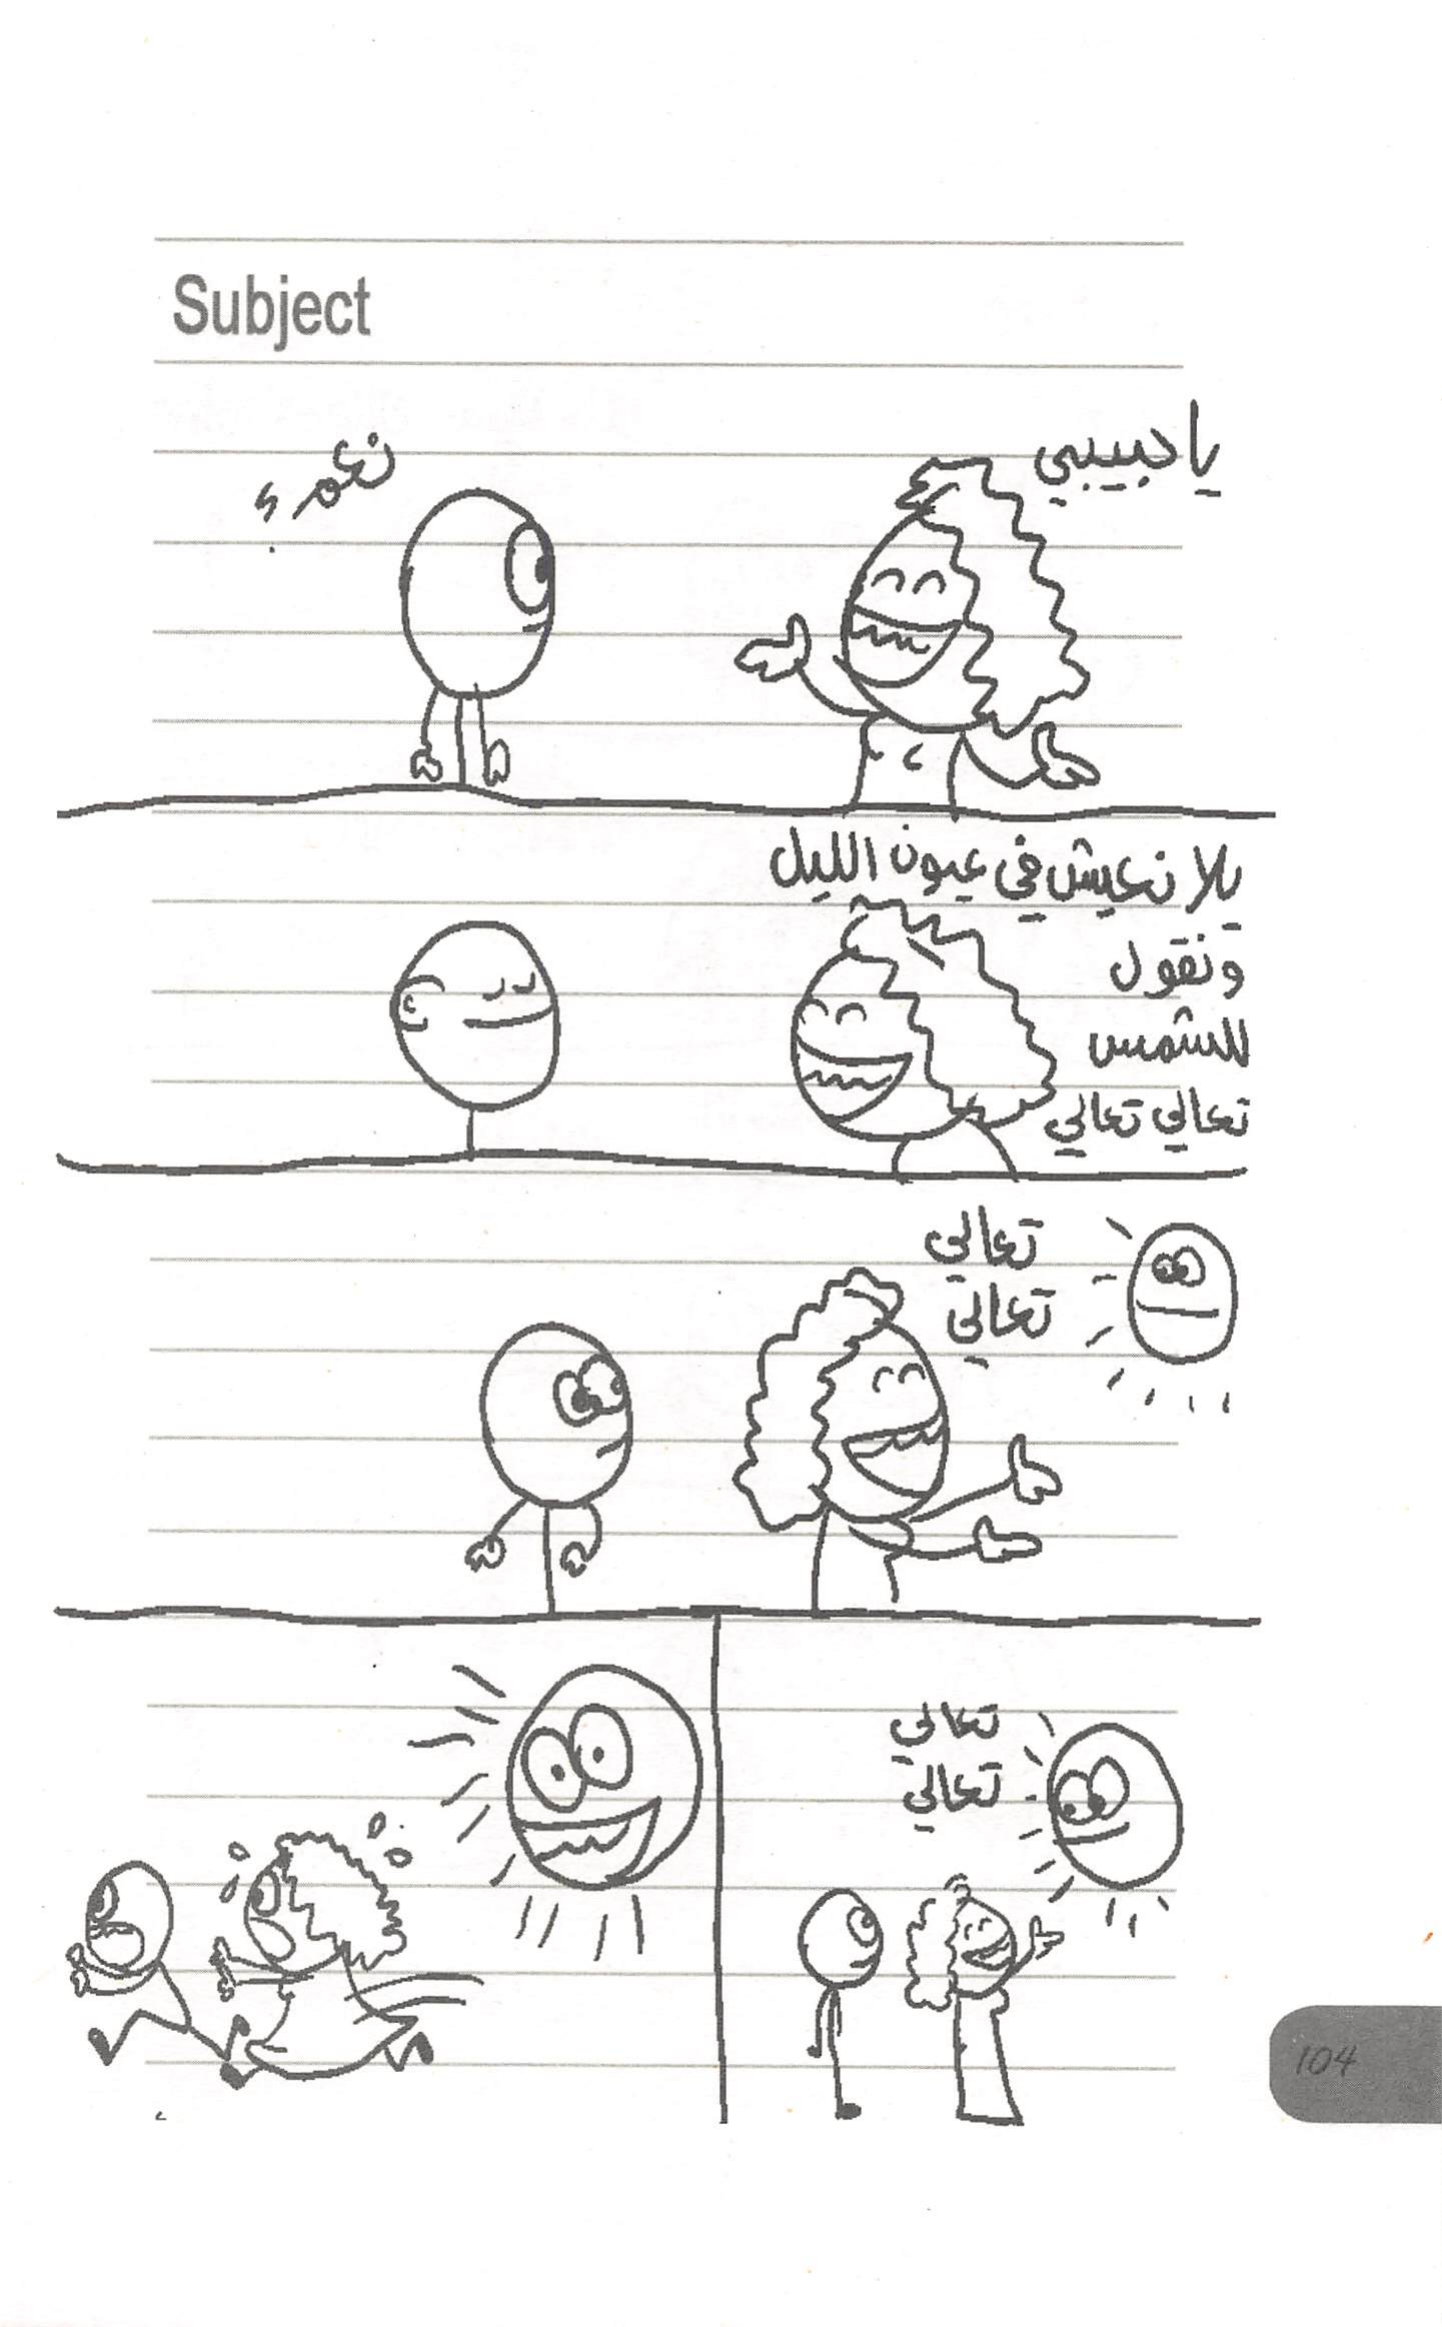 Subject
يا حبيبي
نعم؟
يلا نعيش في عيون الليل
ونقول
للشمس
تعالي تعالي
تعالي
تعالي
تعالي
تعالي
104